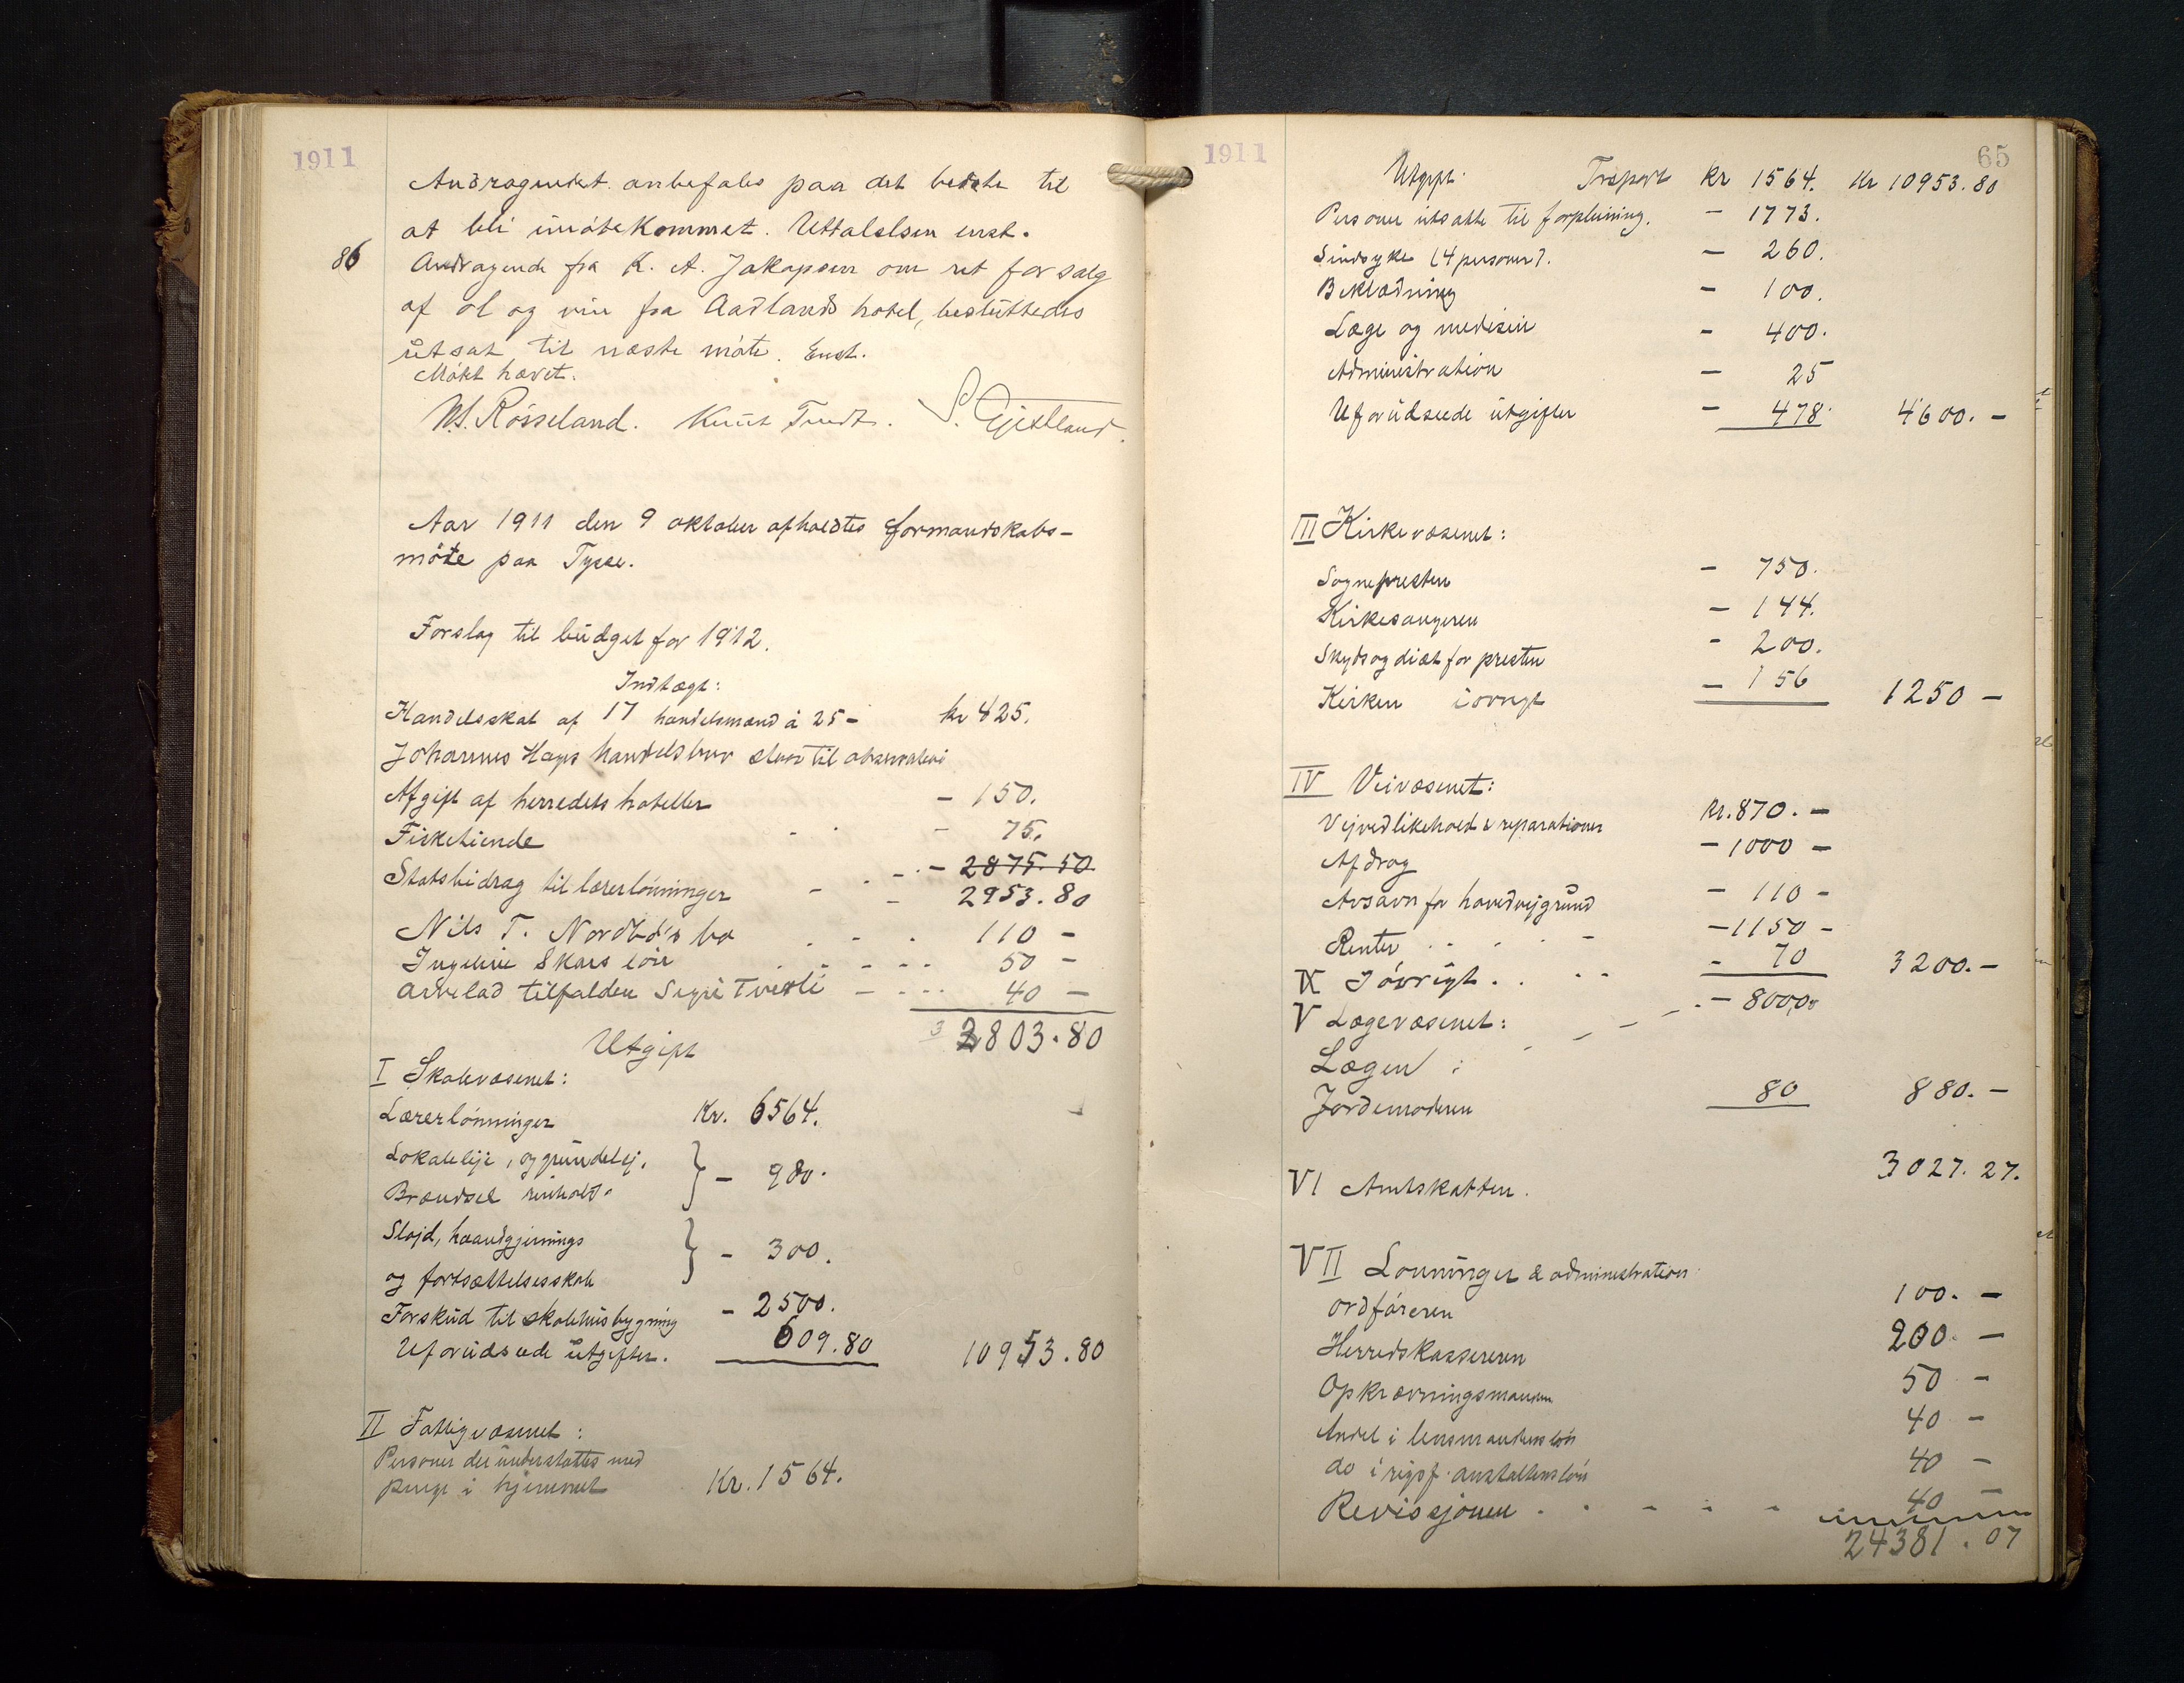 1911
Andragendet anbefales paa det bedste til
at bli imøtekommet. Uttalelsen enst.
86 Andragende fra K. A. Jakopsen om ret for salg
af øl og vin fra Aadlands hotel, besluttedes
utsat til næste møte. Enst.
Møtet hævet.
N. S. Røsseland. Knut Tvedt. S. Gjestland.
Aar 1911 den 9 oktober afholdtes formandskabs-
møte paa Tysse.
Forslag til budget for 1912.
Indtægt:
Handelsskat af 17 handelsmænd à 25 - kr 425.
Johannes Hages handelsbrev staar til observation
Afgift af herredets hoteller - 150.
Fisketiende - 75.
- 2875.50
Statsbidrag til lærerlønninger - 2953.80
Nils T. Nordbø's bo 110 -
Ingeline Skars løn 50 -
Arvelad tilfalden Sigri Tveitli 40 -
3803.80
Utgift
I Skolevæsenet:
Lærerlønninger Kr. 6564.
Lokaleleje, og grundlej.
Brændsel renhold. } - 980.
Sløjd, haandgjernings
og fortsættelsesskole } - 300.
Forskud til skolehusbygning - 2500.
Uforudseede utgifter. 609.80 10953.80
II Fattigvæsenet:
Personer der understøttes med
penge i hjemmet Kr. 1564.
1911 65
Utgift. Trsport kr 1564. Kr 10953.80
Personer utsatte til forpleining. - 1773.
Sindsyke (4 personer). - 260.
Beklædning - 100.
Læge og medisin - 400.
Administration - 25
Uforudseede utgifter - 478. 4600. -
III Kirkevæsenet:
Sognepresten - 750.
Kirkesangeren - 144.
Skyds og diæt for presten - 200.
Kirken iøvrigt - 156 1250 -
IV Veivæsenet:
Vejvedlikehold & reparationer kr. 870. -
Afdrag - 1000 -
Avsavn for hovedvejgrund - 110 -
Renter - 1150 -
Iøvrigt . . - 70 3200. -
V Lægevæsenet: - 800,00
Lægen :
Jordemoderen 80 880. -
VI Amtskatten. 3027.27.
VII Lønninger & administration
Ordføreren 100. -
Herredskassereren 200. -
Opkrævningsmanden 50 -
Andel i lensmandens løn 40 -
do i rigsf. anstaltens løn 40 -
Revissjonen . . - - - 40 -
24381.07